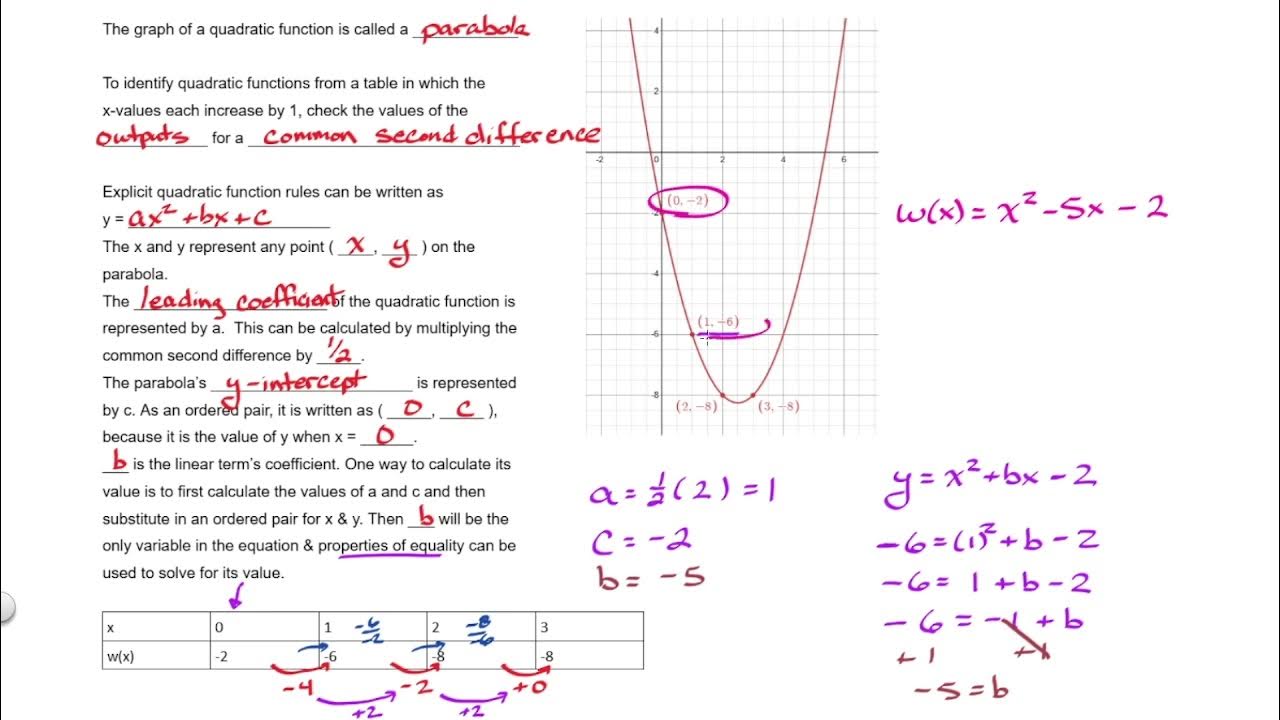 The graph of a quadratic function is called a parabola
To identify quadratic functions from a table in which the
x-values each increase by 1, check the values of the
outputs for a common second difference
Explicit quadratic function rules can be written as
y = ax² + bx + c
The x and y represent any point ( x , y ) on the
parabola.
The leading coefficient of the quadratic function is
represented by a. This can be calculated by multiplying the
common second difference by 1/2.
The parabola's y-intercept is represented
by c. As an ordered pair, it is written as ( 0 , c ),
because it is the value of y when x = 0.
b is the linear term's coefficient. One way to calculate its
value is to first calculate the values of a and c and then
substitute in an ordered pair for x & y. Then b will be the
only variable in the equation & properties of equality can be
used to solve for its value.
x 0 1 -6/-2 2 -8/-6 3
w(x) -2 -6 -8 -8
-4 -2 +0
+2 +2
4
2
-2 0 2 4 6
(0, -2)
-2
-4
(1, -6)
-6
-8
(2, -8) (3, -8)
w(x) = x² - 5x - 2
a = 1/2 (2) = 1
c = -2
b = -5
y = x² + bx - 2
-6 = (1)² + b - 2
-6 = 1 + b - 2
-6 = -1 + b
+1 +1
-5 = b